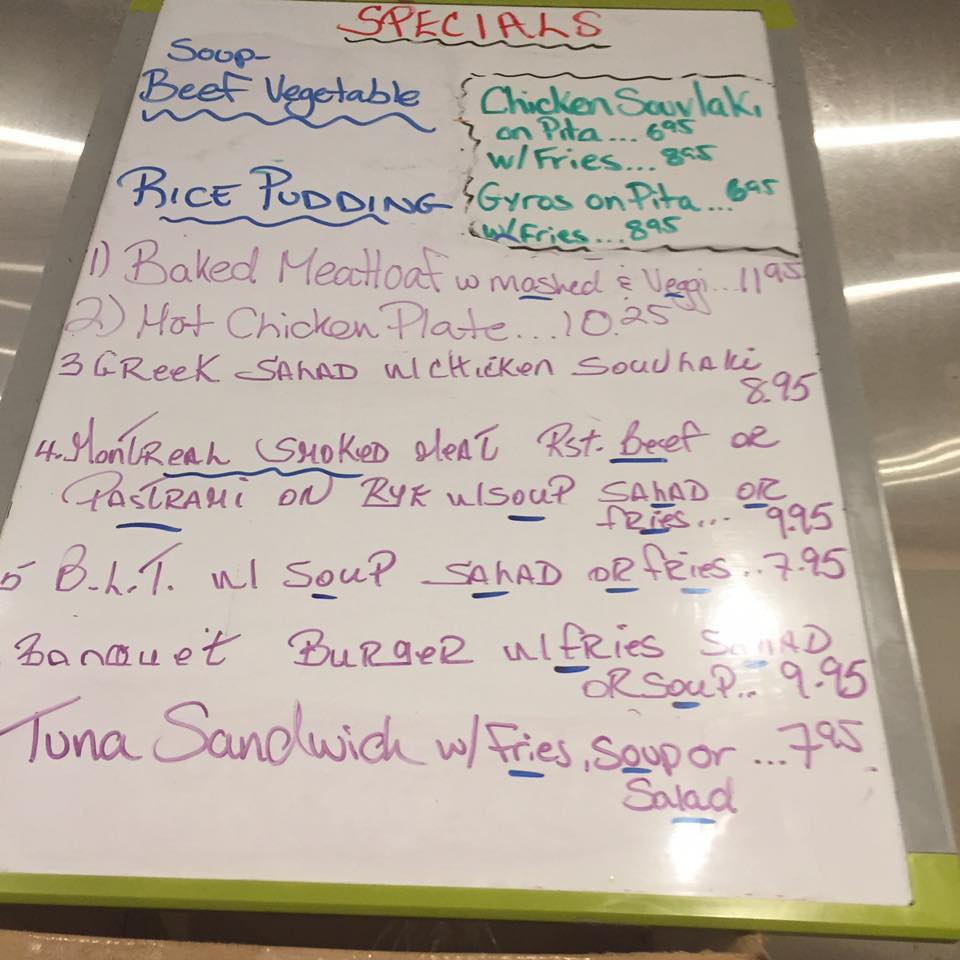 SPECIALS
Soup-
Beef Vegetable
RICE PUDDING
Chicken Souvlaki
on Pita ... 6.95
w/Fries... 8.95
Gyros on Pita ... 6.95
w/Fries ... 8.95
1) Baked Meatloaf w mashed & Veggi... 11.95
2) Hot Chicken Plate... 10.25
3 GReek SALAD w/CHicken Souvlaki
8.95
4. MonTReaL SMOKED MeAT Rst. Beef or
PASTRAMi ON RYE w/Soup SALAD OR
fRies... 9.95
5 B.L.T. w/ Soup SALAD OR fRies.. 7.95
Banquet BURgeR w/fRies SaLAD
OR Soup.. 9.95
Tuna Sandwich w/Fries, Soup or ...7.95
Salad